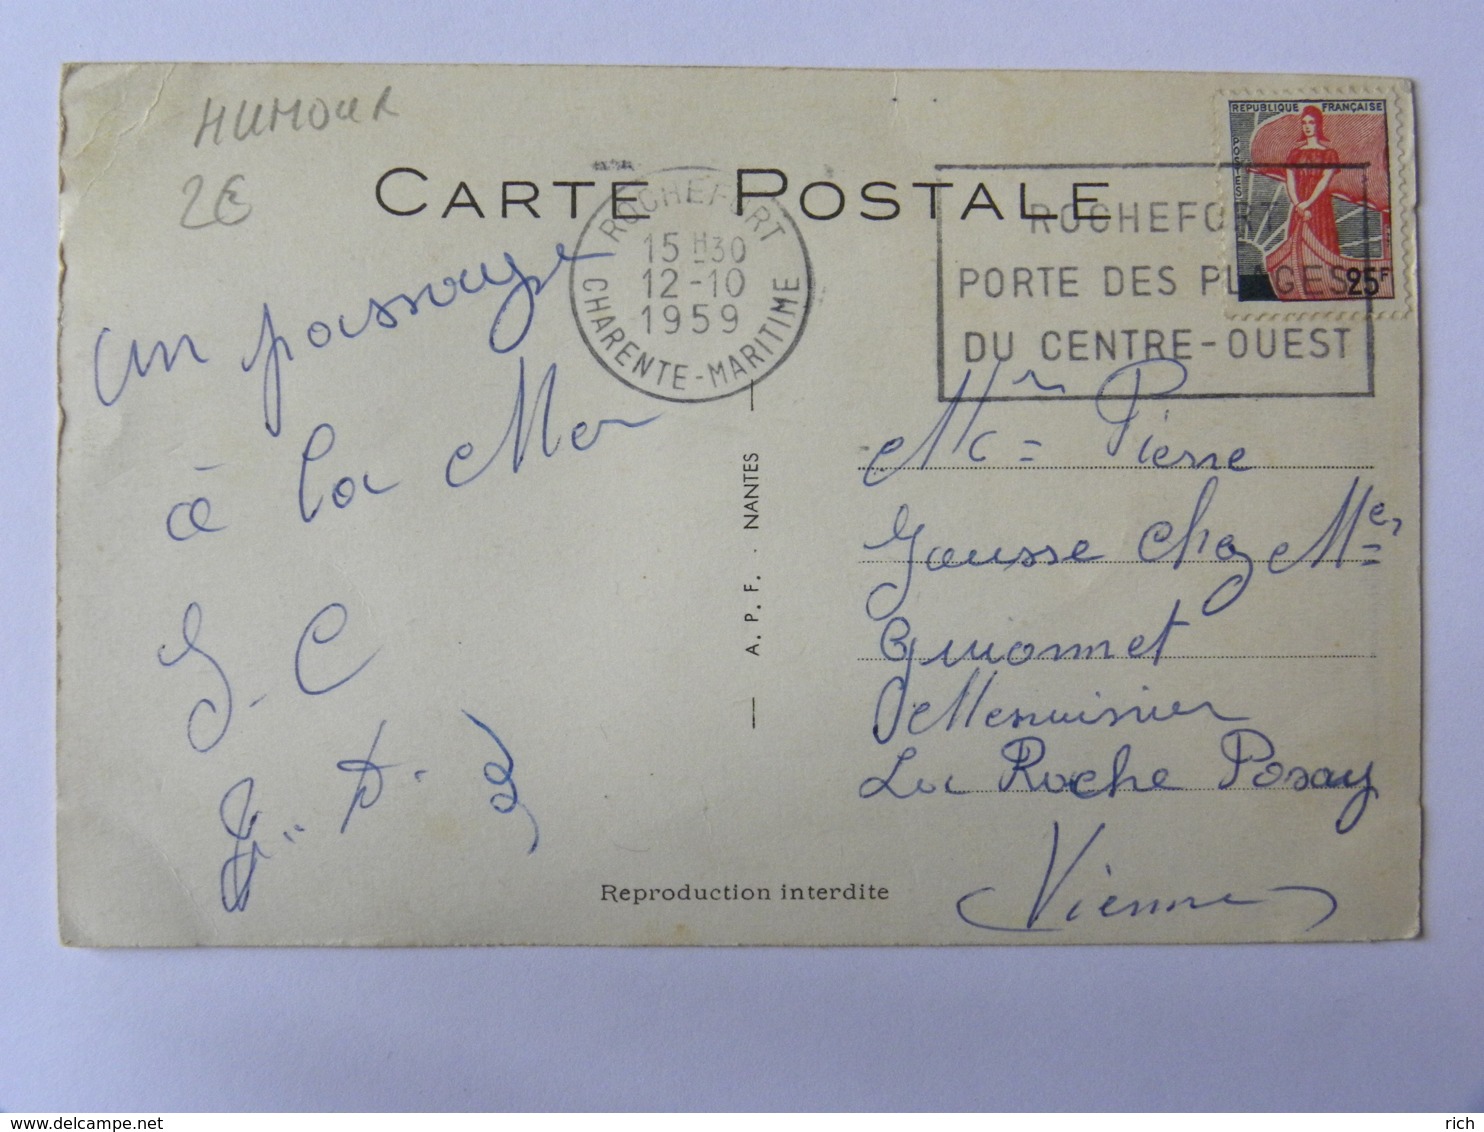 HUMOUR
2€
CARTE POSTALE
ROCHEFORT
15 H30
12-10
1959
CHARENTE-MARITIME
ROCHEFORT
PORTE DES PLAGES
DU CENTRE-OUEST
REPUBLIQUE FRANÇAISE
POSTES
25F
un passage
à la Mer
A. P. F. - NANTES
Mr = Pierre
Gousse chez Me
Guionnet
Menuisier
La Roche Posay
Vienne
Reproduction interdite
www.delcampe.net
rich